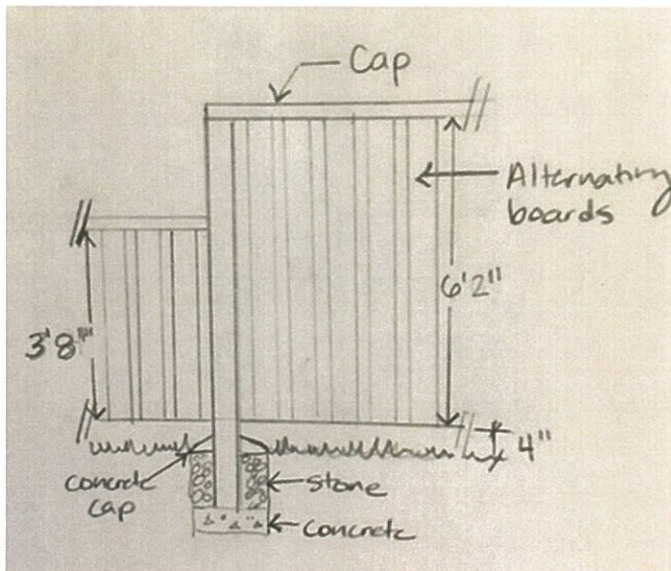 Cap
Alternating
boards
6'2"
3'8"
4"
concrete
cap
stone
concrete